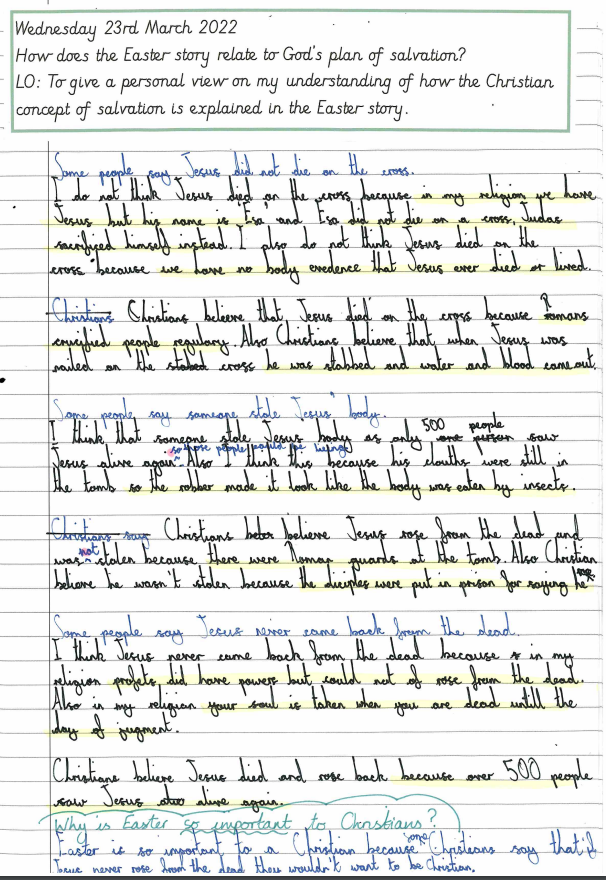 Wednesday 23rd March 2022
How does the Easter story relate to God's plan of salvation?
LO: To give a personal view on my understanding of how the Christian
concept of salvation is explained in the Easter story.
Some people say Jesus did not die on the cross.
I do not think Jesus died on the cross because in my religion we have
Jesus but his name is Esa and Esa did not die on a cross, Judas
sacrifyed himself instead. I also do not think Jesus died on the
cross because we have no body evedence that Jesus ever died or lived.
Christians Christians beleeve that Jesus died on the cross because Romans
crucified people regulary. Also Christians believe that when Jesus was
nailed on the stabed cross he was stabbed and water and blood came out.
Some people say someone stole Jesus' body.
I think that someone stole Jesus' body as only one person 500 people saw
Jesus alive again so those people could be lieing. Also I think this because his clouths were still in
the tomb so the robber made it look like the body was eaten by insects.
Christians say Christians believe Jesus rose from the dead and
was not stolen because there were Roman guards at the tomb. Also Christian
believe he wasn't stolen because the diciples were put in prison for saying he rose
Some people say Jesus never came back from the dead.
I think Jesus never came back from the dead because in my
religion profets did have powers but could not of rose from the dead.
Also in my religian your soul is taken when you are dead untill the
day of jugment.
Christians believe Jesus died and rose back because over 500 people
saw Jesus alive again.
Why is Easter so important to Christians?
Easter is so important to a Christian because some Christians say that if
Jesus never rose from the dead they wouldn't want to be Christian.